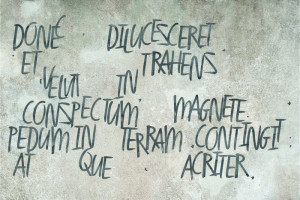 DONÉ DILUCESCERET
ET . TRAHENS
VELUT IN
CONSPECTUM MAGNETE.
PEDUM IN TERRAM . CONTINGIT
AT QUE ACRITER.